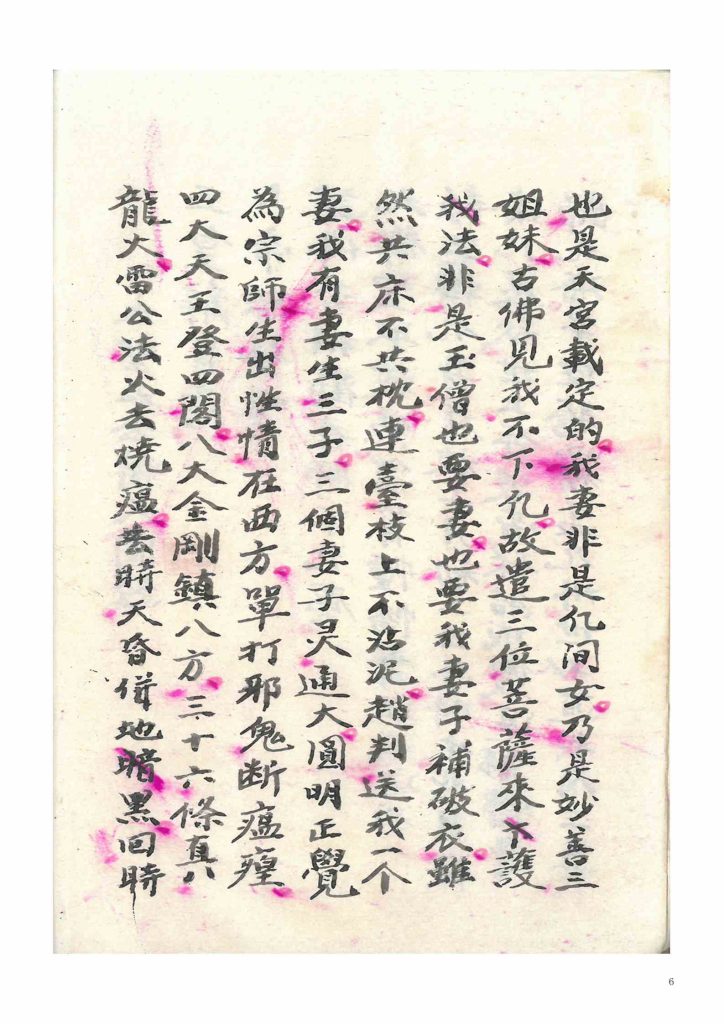 也是天宮載定的我妻非是仉间女乃是妙善三
姐妹古佛見我不下仉故遣三位菩薩來下護
我法非是玉僧也要妻也要我妻子補破衣雖
然共床不共枕連臺枝上不沾泥趙判送我一个
妻我有妻生三子三個妻子灵通大圓明正覺
為宗師生出性情在西方單打邪鬼断瘟瘟
四大天王登四閣八大金剛鎮八方三十六條真
龍大雷公法火去燒瘟去時天昏併地暗黑回時
6